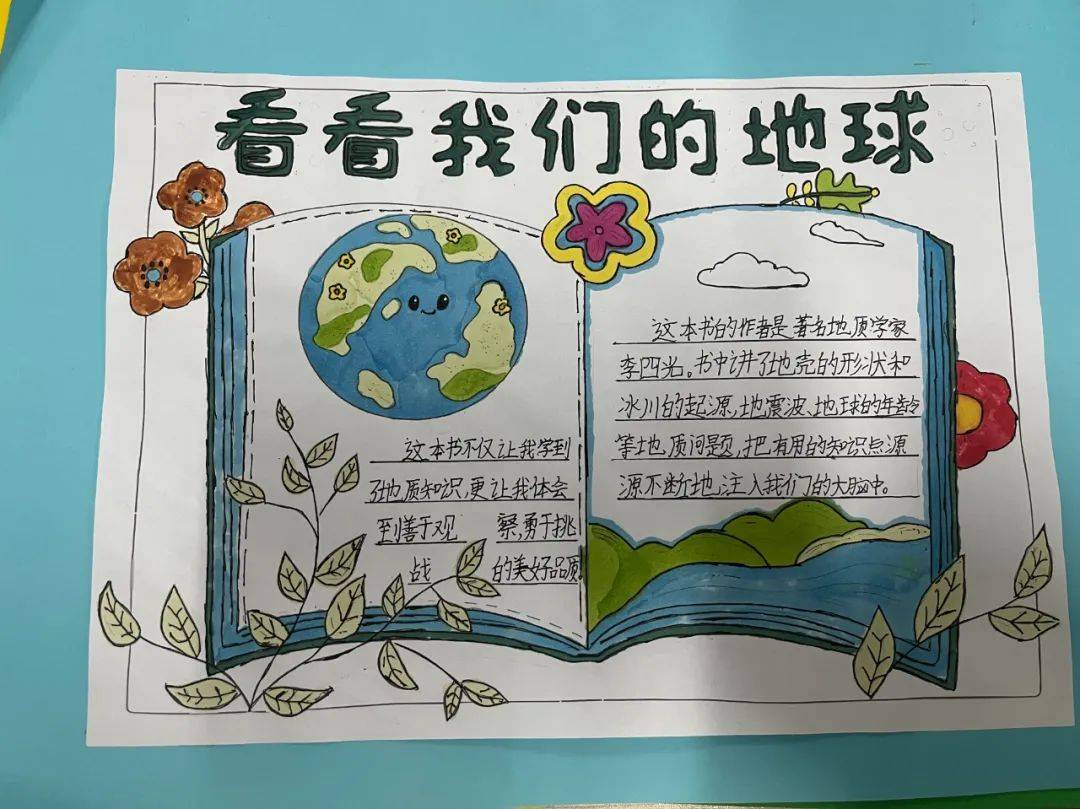 看看我们的地球
这本书不仅让我学到
了地质知识,更让我体会
到善于观 察,勇于挑
战 的美好品质
这本书的作者是著名地质学家
李四光。书中讲了地壳的形状和
冰川的起源,地震波、地球的年龄
等地质问题,把有用的知识点源
源不断地注入我们的大脑中。